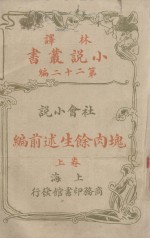 林譯
小說叢書
第二十二編
社會小說
塊肉餘生述前編
卷上
上海
商務印書館發行